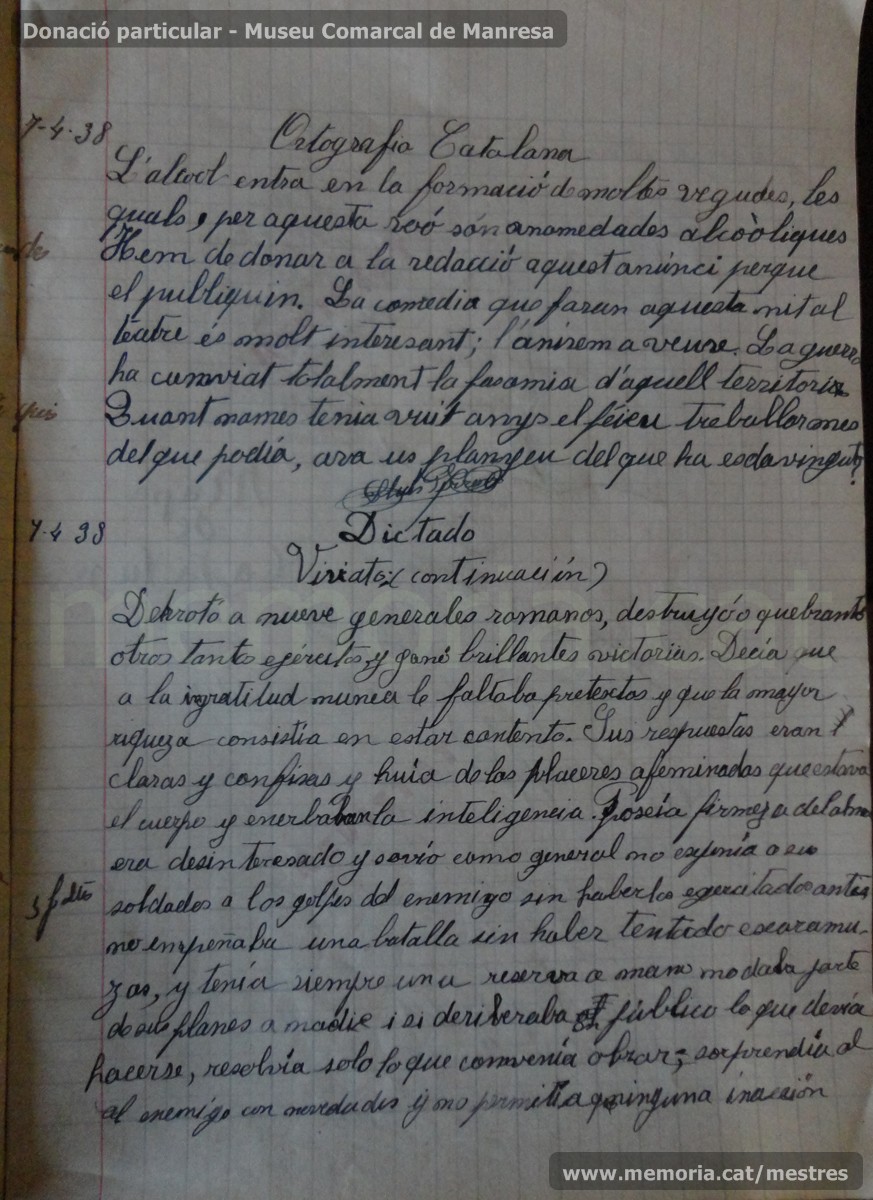 Donació particular - Museu Comarcal de Manresa
7-4-38
Ortografia Catalana
L'alcool entra en la formació de moltes vegudes, les
quals, per aquesta raó són anomedades alcoòliques
Hem de donar a la redacció aquest anúnci perque
el publiquin. La comedia que faran aquesta nit al
teatre és molt interesant; l'anirem a veure. La guerra
ha cumviat totalment la fesomia d'aquell territori
Quant nomes tenia vuit anys el féieu treballar mes
del que podia, ara us planyeu del que ha esdevingut?
7-4 38
Dictado
Viriato: (continuación)
Derrotó a nueve generales romanos, destruyó o quebrantó
otros tanto ejércitos, y ganó brillantes victorias. Decía que
a la ingratitud nunca le faltaba pretextos y que la mayor
riqueza consistía en estar contento. Sus respuestas eran
claras y confisas y huía de los placeres afeminados que
el cuerpo y enerbában la inteligencia. Poseía firmeza del alma
era desinteresado y savio como general no esponía a su
soldados a los golpes del enemigo sin haberlos egercitados antes
no empeñaba una batalla sin haber tentado escaramu-
zas, y tenía siempre una reserva a mano no daba parte
de sus planes a nadie i si deriberaba público lo que devía
hacerse, resolvía solo lo que convenía obrar; sorprendía al
al enemigo con novedades y no permitía ninguna inacción
www.memoria.cat/mestres